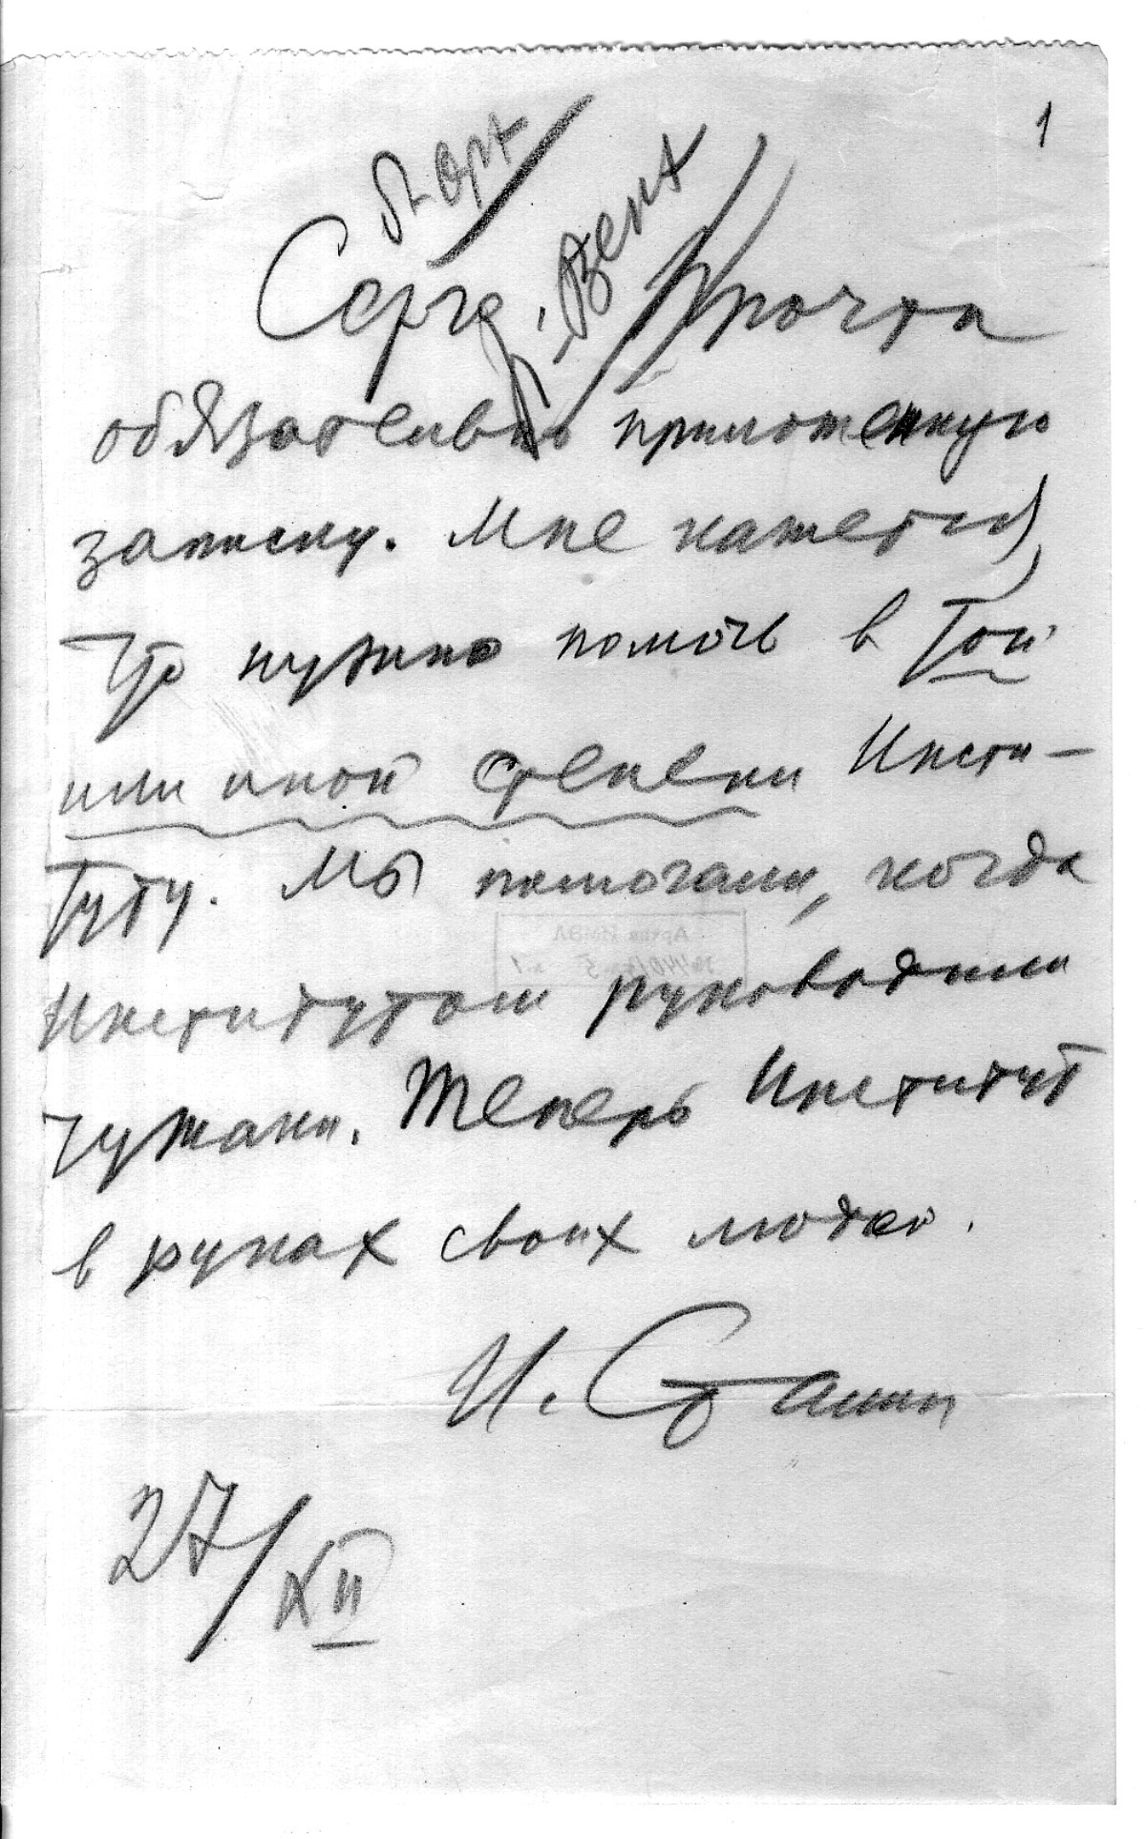 1
Серге, Прочти
обязательно приложенную
записку. Мне кажется,
что нужно помочь в той
или иной степени Инсти-
туту. Мы помогали, когда
Институтом руководили
чужаки. Теперь Институт
в руках своих людей.
И. Сталин
27/XII